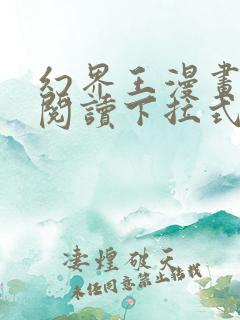 幻界王漫畫
閱讀下拉式
淒煌破天
未经同意禁止转载